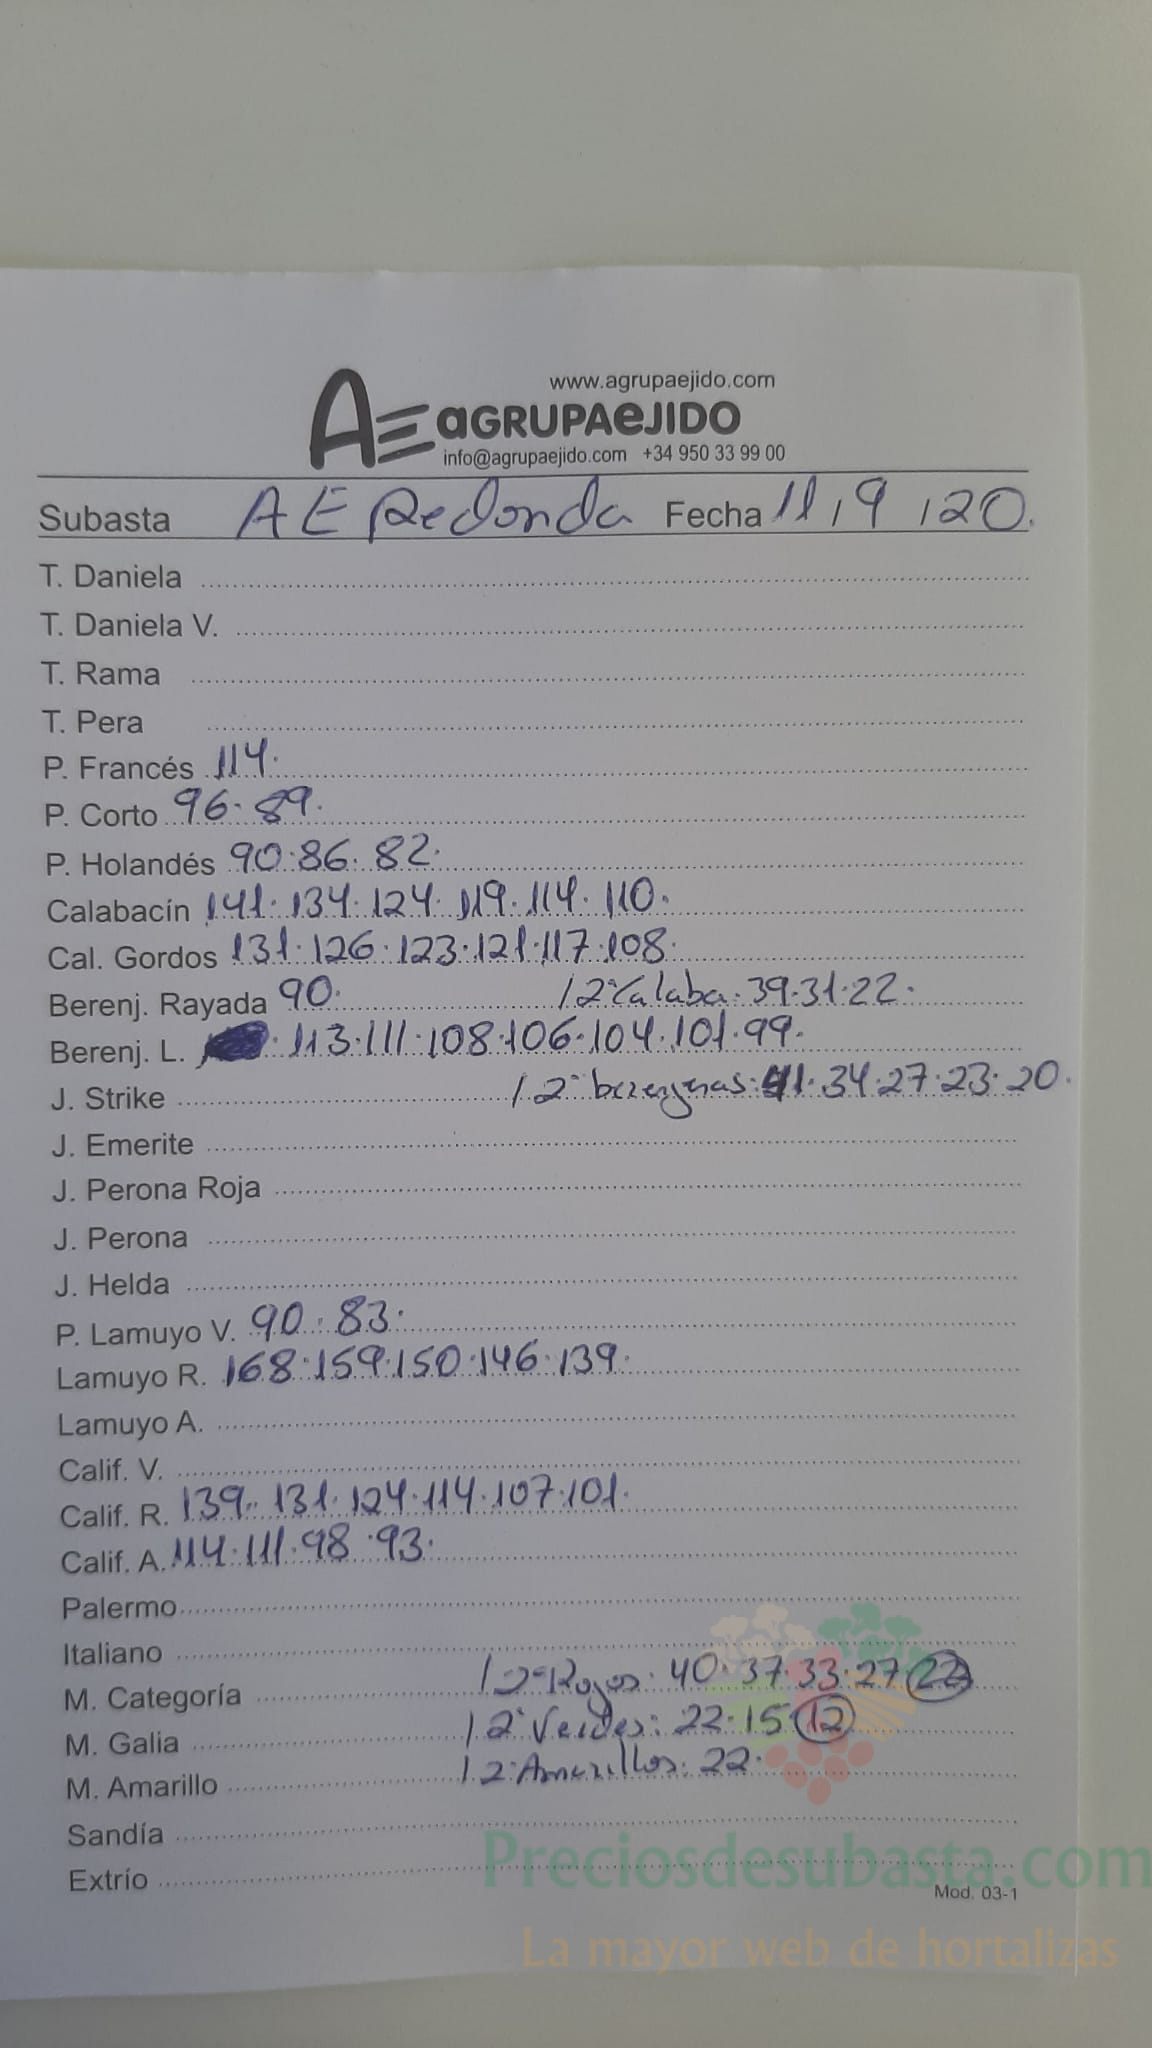 www.agrupaejido.com
AE aGRUPAeJIDO
info@agrupaejido.com +34 950 33 99 00
Subasta AE Redonda Fecha 11,9,20.
T. Daniela
T. Daniela V.
T. Rama
T. Pera
P. Francés 114.
P. Corto 96.89.
P. Holandés 90.86.82.
Calabacín 141.134.124.119.114.110.
Cal. Gordos 131.126.123.121.117.108.
Berenj. Rayada 90. / 2ª Calaba.39.31.22.
Berenj. L. 113.111.108.106.104.101.99.
J. Strike / 2ª berenjenas:41.34.27.23.20.
J. Emerite
J. Perona Roja
J. Perona
J. Helda
P. Lamuyo V. 90.83.
Lamuyo R. 168.159.150.146.139.
Lamuyo A.
Calif. V.
Calif. R. 139..131.124.114.107.101.
Calif. A. 114.111.98.93.
Palermo
Italiano
M. Categoría / 2ª Rojos: 40.37.33.27.22
M. Galia / 2ª Verdes: 22.15.12
M. Amarillo / 2ª Amarillos: 22.
Sandía
Extrío
Preciosdesubasta.com
Mod. 03-1
La mayor web de hortalizas